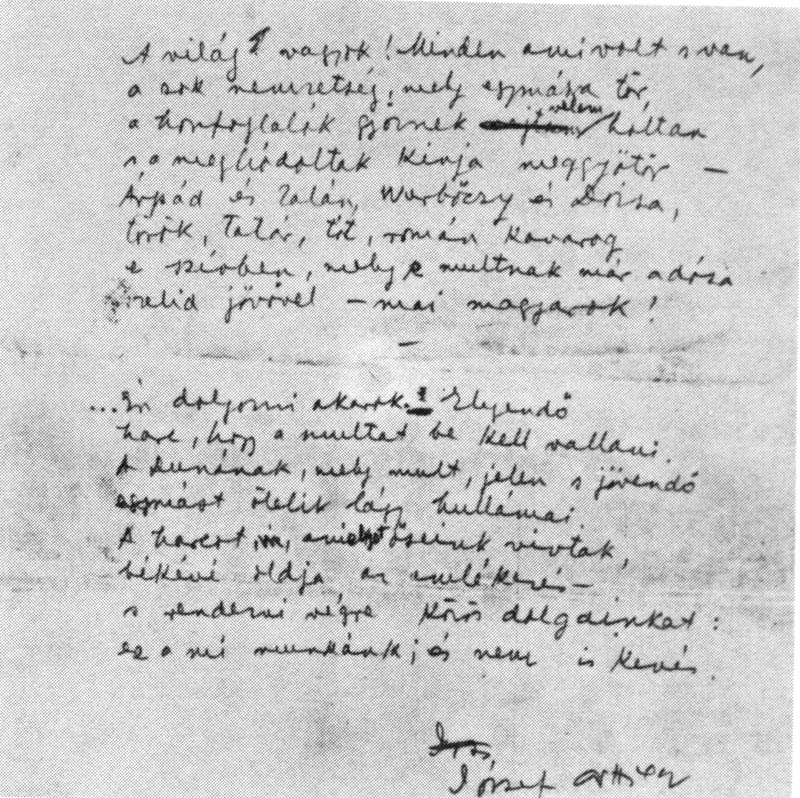 A világ vagyok! Minden ami volt s van,
a sok nemzetség, mely egymásra tör,
a honfoglalók győznek velem holtan
s a meghódoltak kínja meggyötör —
Árpád és Zalán, Werbőczy és Dózsa,
török, tatár, tót, román kavarog
e szívben, mely e multnak már adósa
szelid jövővel — mai magyarok!
—
... Én dolgozni akarok. Elegendő
harc, hogy a multat be kell vallani.
A Dunának, mely mult, jelen s jövendő
egymást ölelik lágy hullámai.
A harcot, amelyet őseink vívtak,
békévé oldja az emlékezés —
s rendezni végre közös dolgainkat:
ez a mi munkánk; és nem is kevés.
József Attila